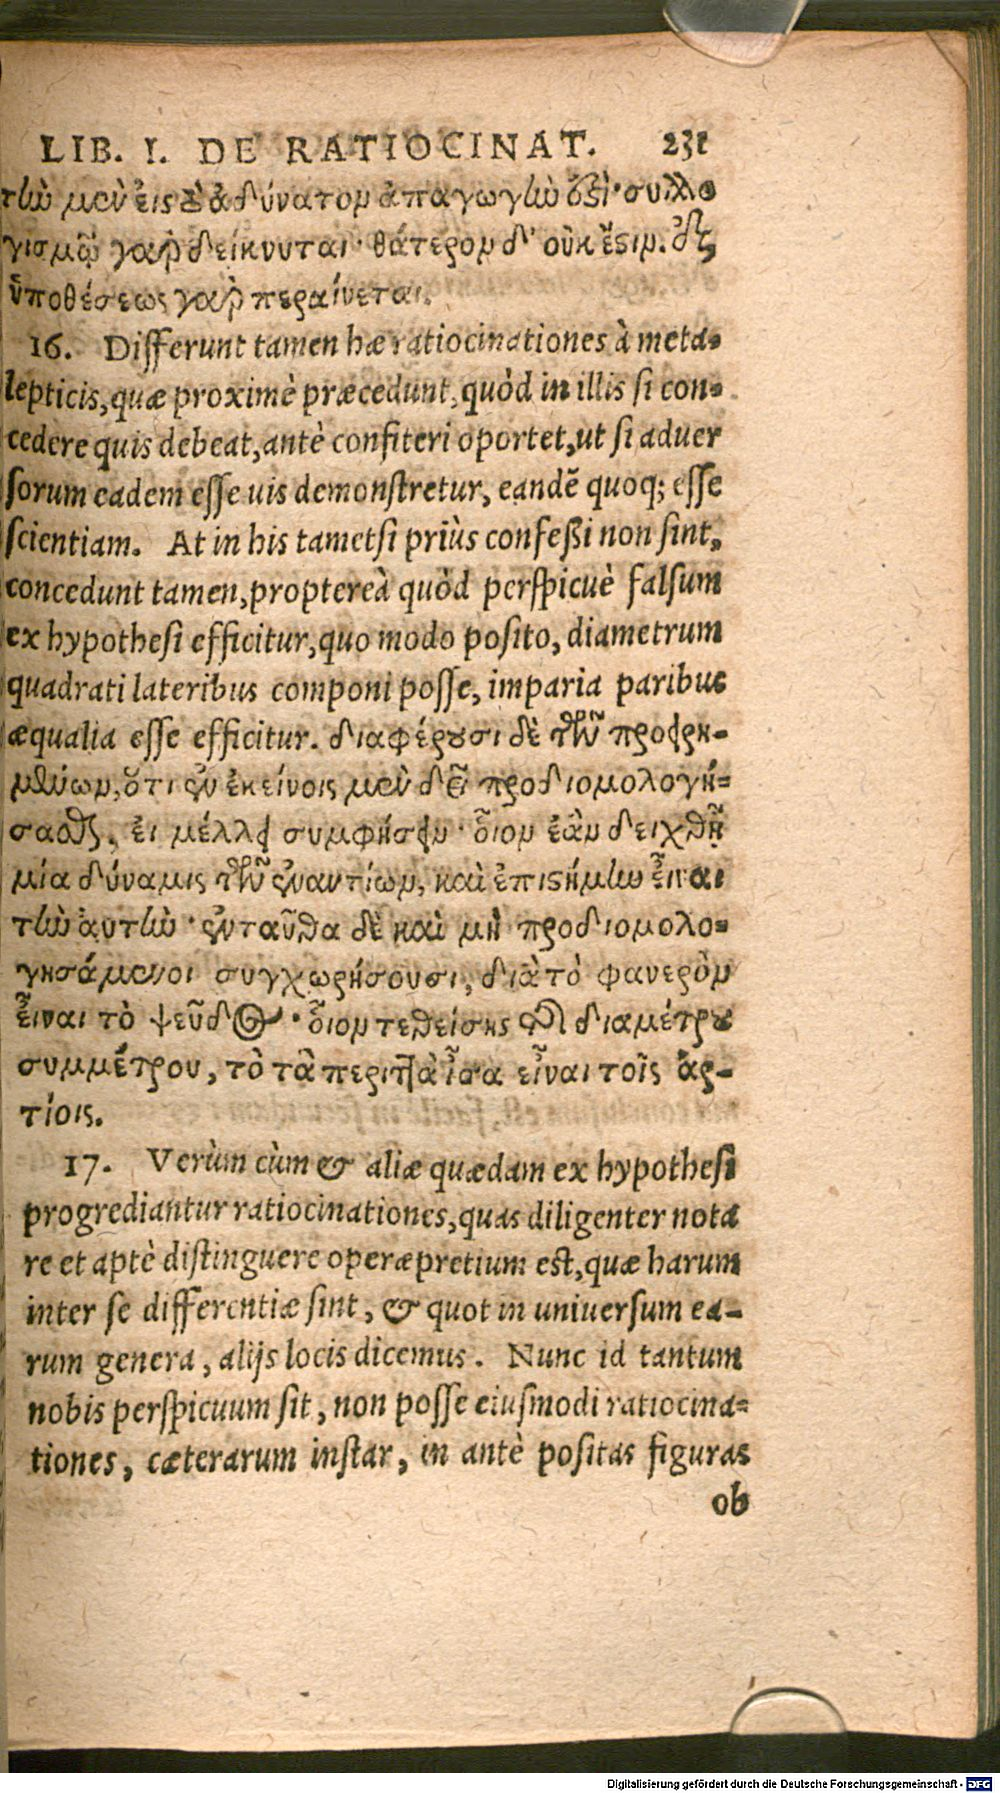 LIB. I. DE RATIOCINAT. 231
τὴν μὲν εἰς τὸ ἀδύνατον ἀπαγωγὴν ἔστι· συλλο
γισμῷ γὰρ δείκνυται· θάτερον δ' οὐκ ἔστιν. ἐξ
ὑποθέσεως γὰρ περαίνεται.
16. Differunt tamen hæ ratiocinationes à meta-
lepticis, quæ proximè præcedunt, quòd in illis si con-
cedere quis debeat, antè confiteri oportet, ut si aduer
sorum eadem esse uis demonstretur, eandẽ quoq; esse
scientiam. At in his tametsi priùs confeßi non sint,
concedunt tamen, proptereà quòd perspicuè falsum
ex hypothesi efficitur, quo modo posito, diametrum
quadrati lateribus componi posse, imparia paribus
æqualia esse efficitur. διαφέρουσι δὲ τῶν προειρη-
μένων, ὅτι ἐν ἐκείνοις μὲν δεῖ προδιομολογή-
σασθαι, εἰ μέλλει συμφήσειν· οἷον ἐὰν δειχθῇ
μία δύναμις τῶν ἐναντίων, καὶ ἐπιστήμην εἶναι
τὴν αὐτὴν· ἐνταῦθα δὲ καὶ μὴ προδιομολο-
γησάμενοι συγχωρήσουσι, διὰ τὸ φανερὸν
εἶναι τὸ ψεῦδος· οἷον τεθείσης τῆς διαμέτρου
συμμέτρου, τὸ τὰ περιττὰ ἴσα εἶναι τοῖς ἀρ-
τίοις.
17. Verùm cùm & aliæ quædam ex hypothesi
progrediantur ratiocinationes, quas diligenter nota
re et aptè distinguere operæpretium est, quæ harum
inter se differentiæ sint, & quot in uniuersum ea-
rum genera, alijs locis dicemus. Nunc id tantum
nobis perspicuum sit, non posse eiusmodi ratiocina-
tiones, cæterarum instar, in antè positas figuras
ob
Digitalisierung gefördert durch die Deutsche Forschungsgemeinschaft - DFG